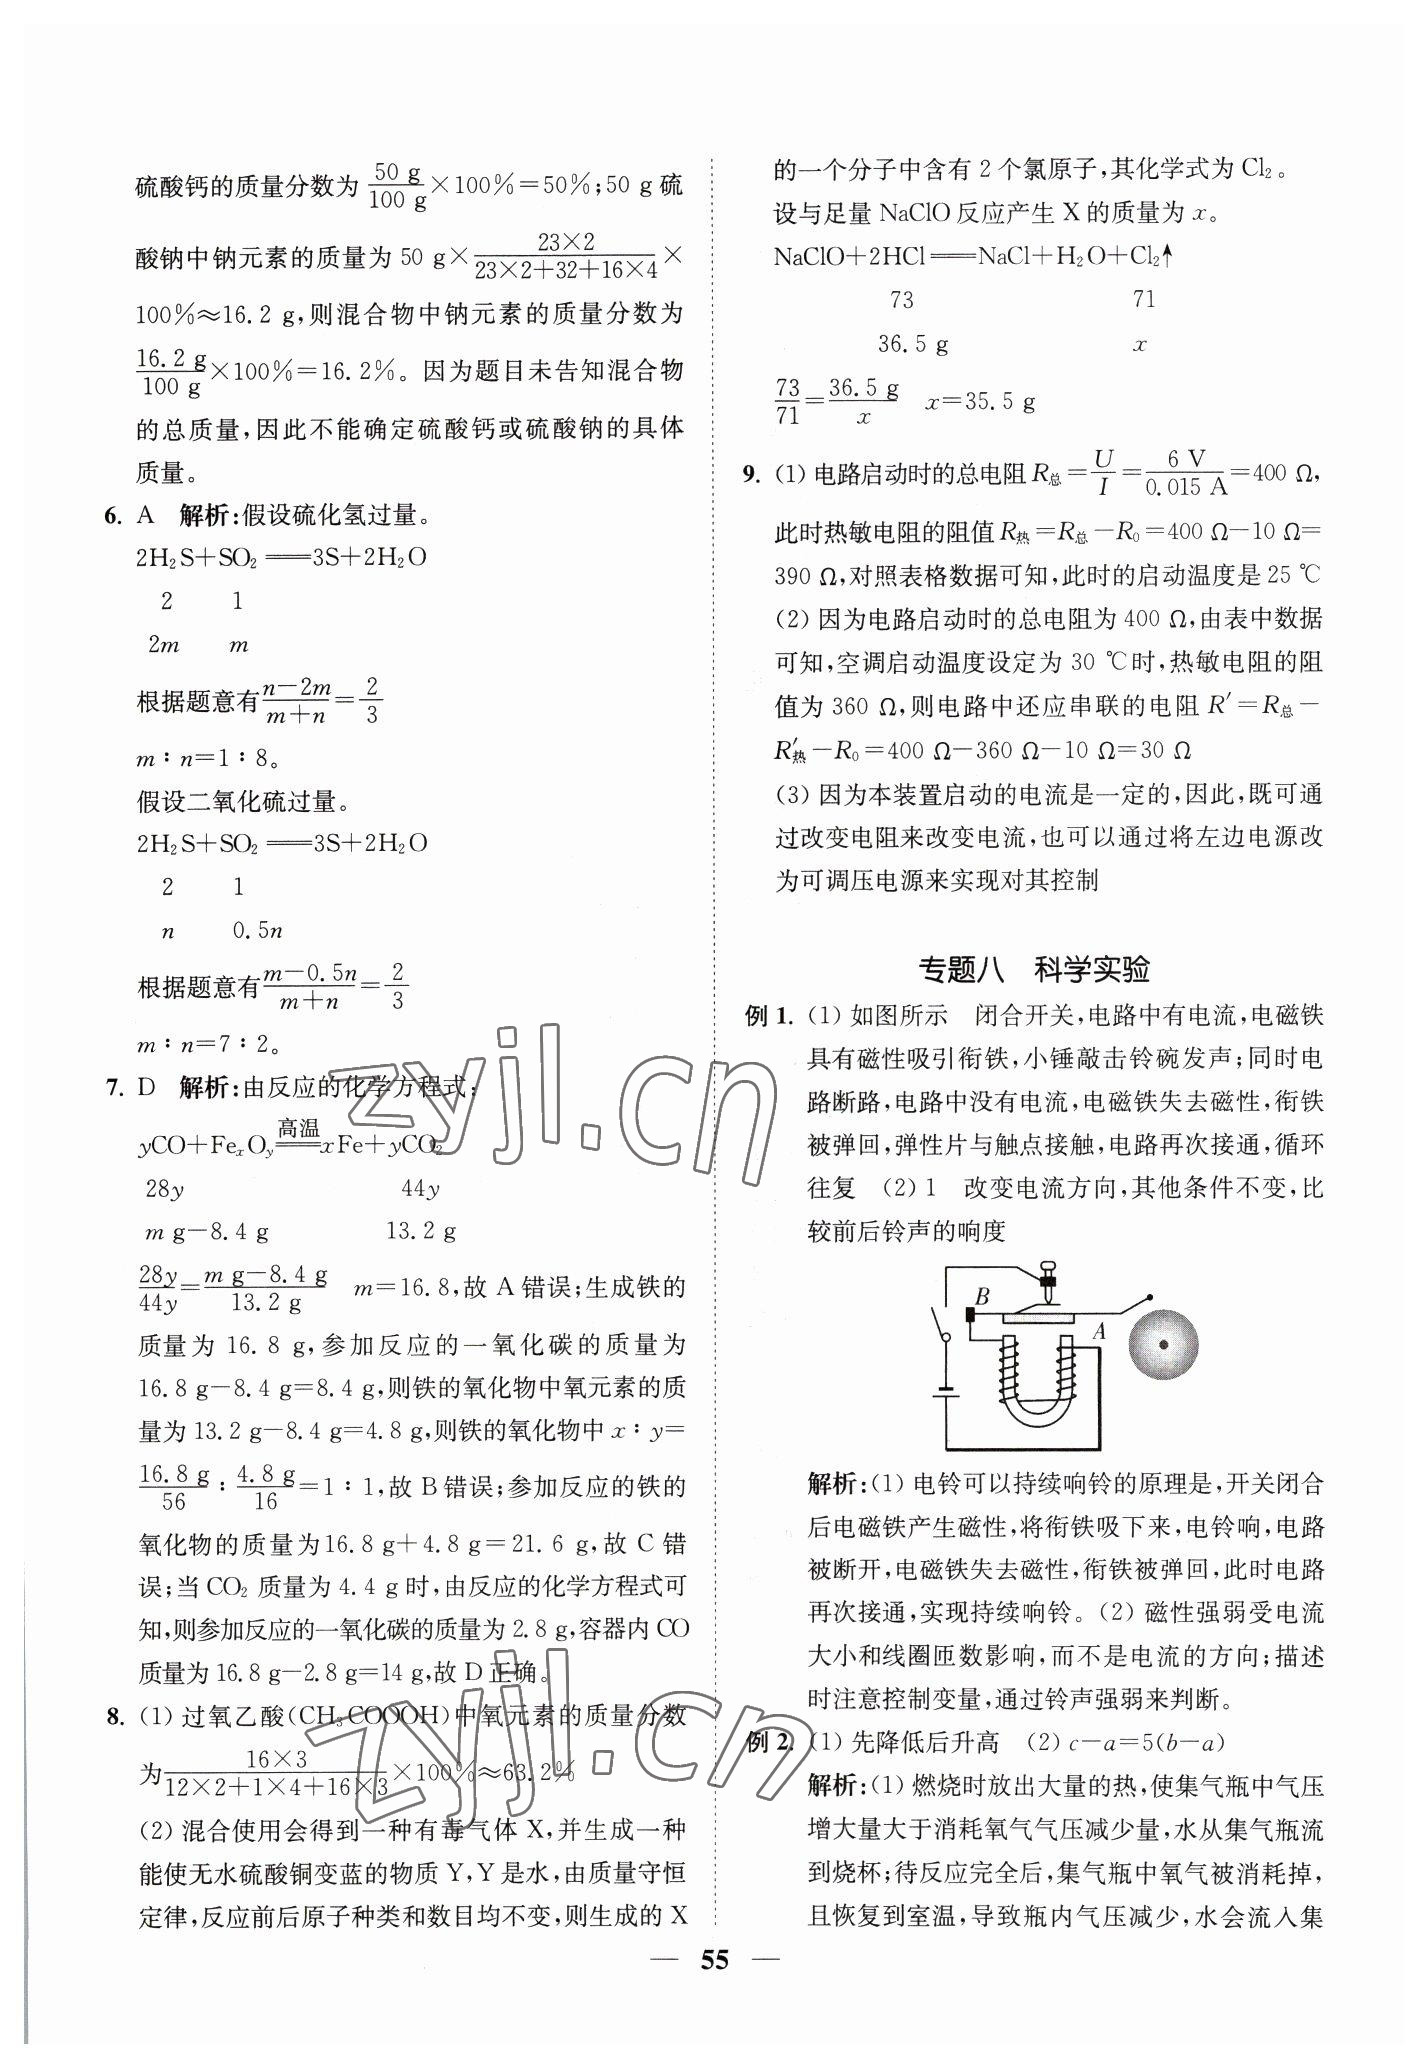 硫酸钙的质量分数为 50 g/100 g ×100%=50%;50 g 硫
酸钠中钠元素的质量为 50 g× 23×2/23×2+32+16×4 ×
100%≈16.2 g,则混合物中钠元素的质量分数为
16.2 g/100 g ×100%=16.2%。因为题目未告知混合物
的总质量,因此不能确定硫酸钙或硫酸钠的具体
质量。
6. A 解析:假设硫化氢过量。
2H₂S+SO₂══3S+2H₂O
2 1
2m m
根据题意有 n−2m/m+n = 2/3
m∶n=1∶8。
假设二氧化硫过量。
2H₂S+SO₂══3S+2H₂O
2 1
n 0.5n
根据题意有 m−0.5n/m+n = 2/3
m∶n=7∶2。
7. D 解析:由反应的化学方程式:
yCO+FeₓOᵧ ═高温═ xFe+yCO₂
28y 44y
m g−8.4 g 13.2 g
28y/44y = m g−8.4 g/13.2 g m=16.8,故 A 错误;生成铁的
质量为 16.8 g,参加反应的一氧化碳的质量为
16.8 g−8.4 g=8.4 g,则铁的氧化物中氧元素的质
量为 13.2 g−8.4 g=4.8 g,则铁的氧化物中 x∶y=
16.8 g/56 ∶ 4.8 g/16 =1∶1,故 B 错误;参加反应的铁的
氧化物的质量为16.8 g+4.8 g=21.6 g,故 C 错
误;当 CO₂ 质量为 4.4 g 时,由反应的化学方程式可
知,则参加反应的一氧化碳的质量为 2.8 g,容器内 CO
质量为 16.8 g−2.8 g=14 g,故 D 正确。
8. (1) 过氧乙酸(CH₃COOOH)中氧元素的质量分数
为 16×3/12×2+1×4+16×3 ×100%≈63.2%
(2) 混合使用会得到一种有毒气体 X,并生成一种
能使无水硫酸铜变蓝的物质 Y,Y 是水,由质量守恒
定律,反应前后原子种类和数目均不变,则生成的 X
的一个分子中含有 2 个氯原子,其化学式为 Cl₂。
设与足量 NaClO 反应产生 X 的质量为 x。
NaClO+2HCl══NaCl+H₂O+Cl₂↑
73 71
36.5 g x
73/71 = 36.5 g/x x=35.5 g
9. (1) 电路启动时的总电阻 R总= U/I = 6 V/0.015 A =400 Ω,
此时热敏电阻的阻值 R热=R总−R₀=400 Ω−10 Ω=
390 Ω,对照表格数据可知,此时的启动温度是 25 ℃
(2) 因为电路启动时的总电阻为 400 Ω,由表中数据
可知,空调启动温度设定为 30 ℃时,热敏电阻的阻
值为 360 Ω,则电路中还应串联的电阻 R′=R总−
R′热−R₀=400 Ω−360 Ω−10 Ω=30 Ω
(3) 因为本装置启动的电流是一定的,因此,既可通
过改变电阻来改变电流,也可以通过将左边电源改
为可调压电源来实现对其控制
专题八 科学实验
例 1. (1) 如图所示 闭合开关,电路中有电流,电磁铁
具有磁性吸引衔铁,小锤敲击铃碗发声;同时电
路断路,电路中没有电流,电磁铁失去磁性,衔铁
被弹回,弹性片与触点接触,电路再次接通,循环
往复 (2) 1 改变电流方向,其他条件不变,比
较前后铃声的响度
B
A
解析:(1) 电铃可以持续响铃的原理是,开关闭合
后电磁铁产生磁性,将衔铁吸下来,电铃响,电路
被断开,电磁铁失去磁性,衔铁被弹回,此时电路
再次接通,实现持续响铃。(2) 磁性强弱受电流
大小和线圈匝数影响,而不是电流的方向;描述
时注意控制变量,通过铃声强弱来判断。
例 2. (1) 先降低后升高 (2) c−a=5(b−a)
解析:(1) 燃烧时放出大量的热,使集气瓶中气压
增大量大于消耗氧气气压减少量,水从集气瓶流
到烧杯;待反应完全后,集气瓶中氧气被消耗掉,
且恢复到室温,导致瓶内气压减少,水会流入集
— 55 —
zyjl.cn
zyjl.cn